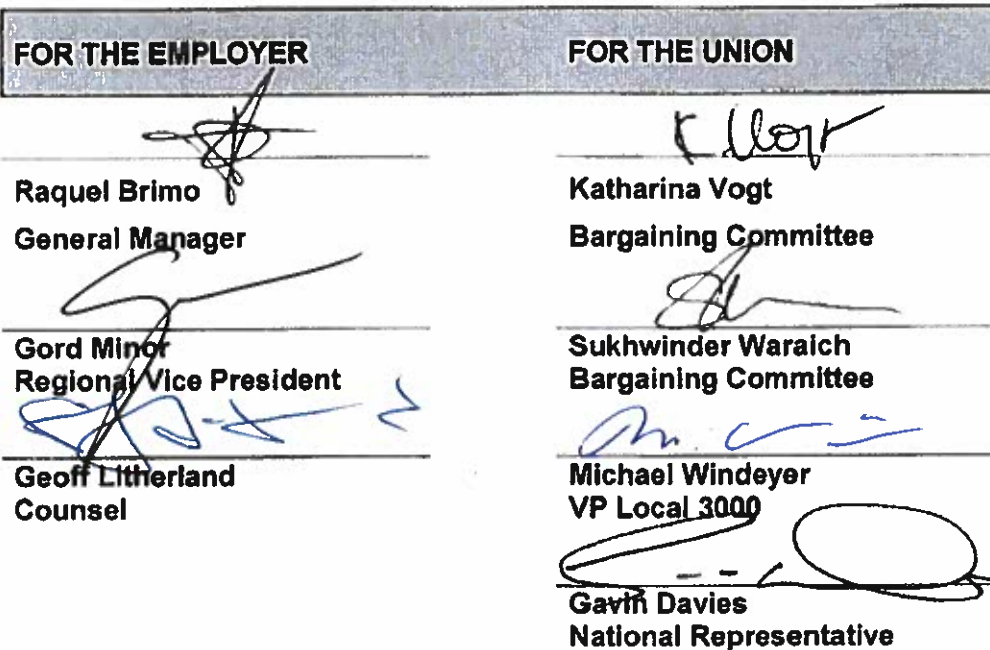 FOR THE EMPLOYER
Raquel Brimo
General Manager
Gord Minor
Regional Vice President
Geoff Litherland
Counsel
FOR THE UNION
K Vogt
Katharina Vogt
Bargaining Committee
Sukhwinder Waraich
Bargaining Committee
Michael Windeyer
VP Local 3000
Gavin Davies
National Representative